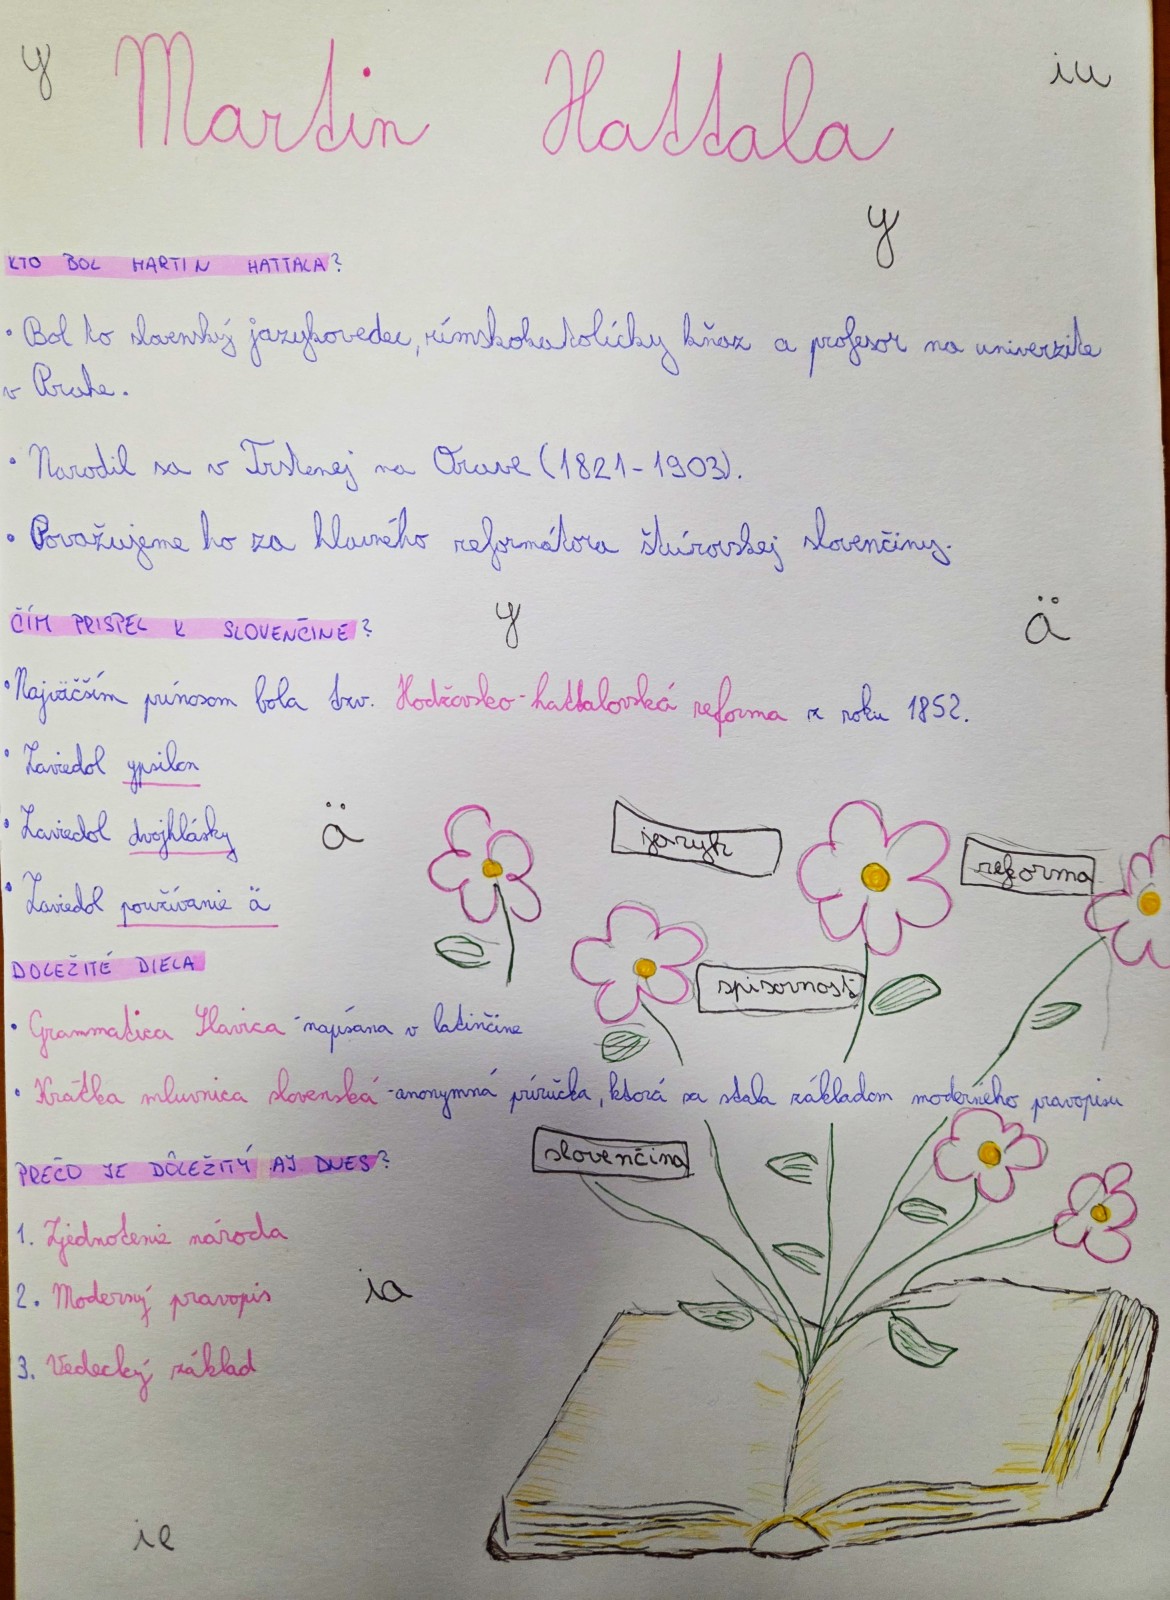 y
iu
Martin Hattala
y
KTO BOL MARTIN HATTALA?
• Bol to slovenský jazykovedec, rímskokatolícky kňaz a profesor na univerzite
v Prahe.
• Narodil sa v Trstenej na Orave (1821-1903).
• Považujeme ho za hlavného reformátora štúrovskej slovenčiny.
ČÍM PRISPEL K SLOVENČINE?
y
ä
• Najväčším prínosom bola tzv. Hodžovsko-hattalovská reforma z roku 1852.
• Zaviedol ypsilon
• Zaviedol dvojhlásky
ä
jazyk
reforma
• Zaviedol používanie ä
DOLEŽITÉ DIELA
spisovnosť
• Grammatica Slavica -napísaná v latinčine
• Krátka mluvnica slovenská -anonymná príručka, ktorá sa stala základom moderného pravopisu
PREČO JE DÔLEŽITÝ AJ DNES?
slovenčina
1. Zjednotenie národa
2. Moderný pravopis
ia
3. Vedecký základ
ie